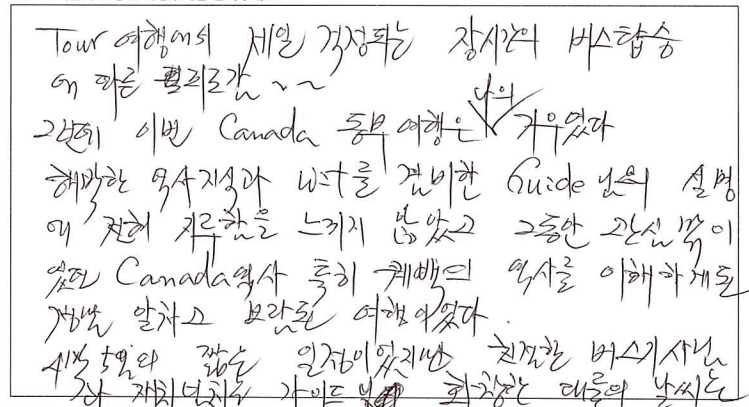 Tour 여행에서 제일 걱정되는 장시간의 버스탑승
에 따른 피로감~~
그런데 이번 Canada 동부 여행은 나의 기우였다
해박한 역사지식과 위트를 겸비한 Guide님의 설명
에 전혀 지루함을 느끼지 않았고 그동안 관심 밖이
었던 Canada역사 특히 퀘백의 역사를 이해하게된
정말 알차고 보람된 여행이었다.
4박 5일의 짧은 일정이었지만 친절한 버스기사님
과 재치넘치는 가이드 화창한 대륙의 날씨는